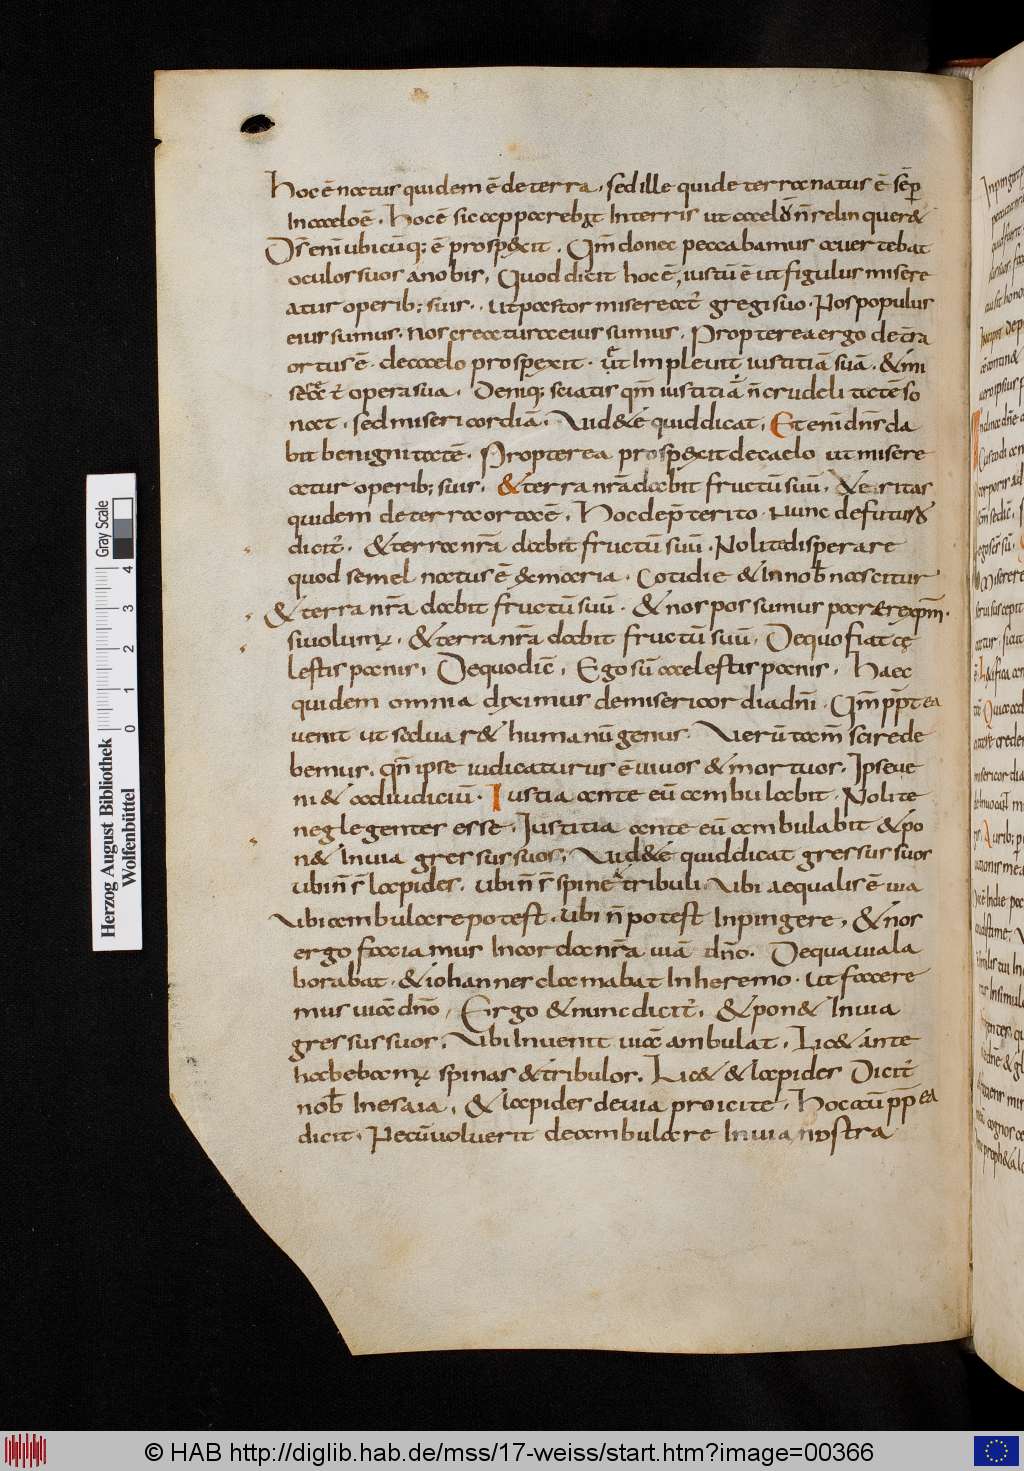 Hoc ē natus quidem ē de terra, sed ille qui de terra natus ē sēp
In caelo ē. Hoc ē sic apparebat In terris ut caelū ñ relinqueret
D̄s enī ubicūq; ē prospexit. Qm̄ donec peccabamus auertebat
oculos suos a nobis, Quod dicit hoc ē, iustū ē ut figulus misere
atur operib; suis. ut pastor misereat' gregi suo. Nos populus
eius sumus. nos creaturae eius sumus. Propterea ergo de t̄ra
ortus ē. de caelo prospexit. ut Impleuit iustitiā suā. & mi
opera sua. Deniq; sciatis qm̄ iustitiā ñ crudelitatē so
nat, sed misericordiā. Uidete quid dicat, Etenī dn̄s da
bit benignitatē. Propterea prospexit de caelo ut misere
atur operib; suis. & terra nr̄a dabit fructū suū, Ueritas
quidem de terra orta ē, Hoc de p̄terito. Nunc de futuris
dicit'. & terra nr̄a dabit fructū suū. Nolite disperare
quod semel natus ē de maria. Cotidie & in nob̄ nascitur
& terra nr̄a dabit fructū suū. & nos possumus parere xp̄m.
si uolum;. & terra nr̄a dabit fructū suū. De quo fiat cę
lestis panis, De quo dic̄, Ego sū caelestis panis. Haec
quidem omnia diximus de misericordia dn̄i. Qm̄ p̄p̄tea
uenit ut saluaret humanū genus. Uerū tam̄ scire de
bemus, qn̄ ipse iudicaturus ē uiuos & mortuos. Ipse ue
ni& ad iudiciū. Iustia ante eū ambulabit. Nolite
neglegenter esse. Iustitia ante eū ambulabit & po
n& In uia gressus suos. Uidete quid dicat gressus suos
ubi ñ s̄ lapides. ubi ñ s̄ spine & tribuli. Ubi aequalis ē uia
Ubi ambulare potest. ubi ñ potest Inpingere, & nos
ergo faciamus In corda nr̄a uiā dn̄o. De qua uia la
borabat. & iohannes clamabat In heremo. ut facere
mus uiā dn̄o, Ergo & nunc dicit', & pon& In uia
gressus suos, Ubi Inuenit uiā ambulat, Lic& ante
habebam; spinas & tribulos. Lic& & lapides Dicit'
nob̄ In esaia, & lapides de uia proicite. Hoc aū p̄p̄ea
dicit. Ne cū uoluerit deambulare In uia nostra
Herzog August Bibliothek
Wolfenbüttel
Gray Scale
0 1 2 3 4
© HAB http://diglib.hab.de/mss/17-weiss/start.htm?image=00366